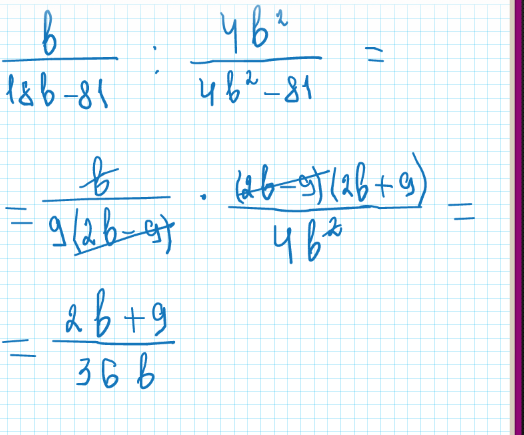 b/(18b-81) : 4b²/(4b²-81) =
= b/(9(2b-9)) · (2b-9)(2b+9)/(4b²) =
= (2b+9)/(36b)